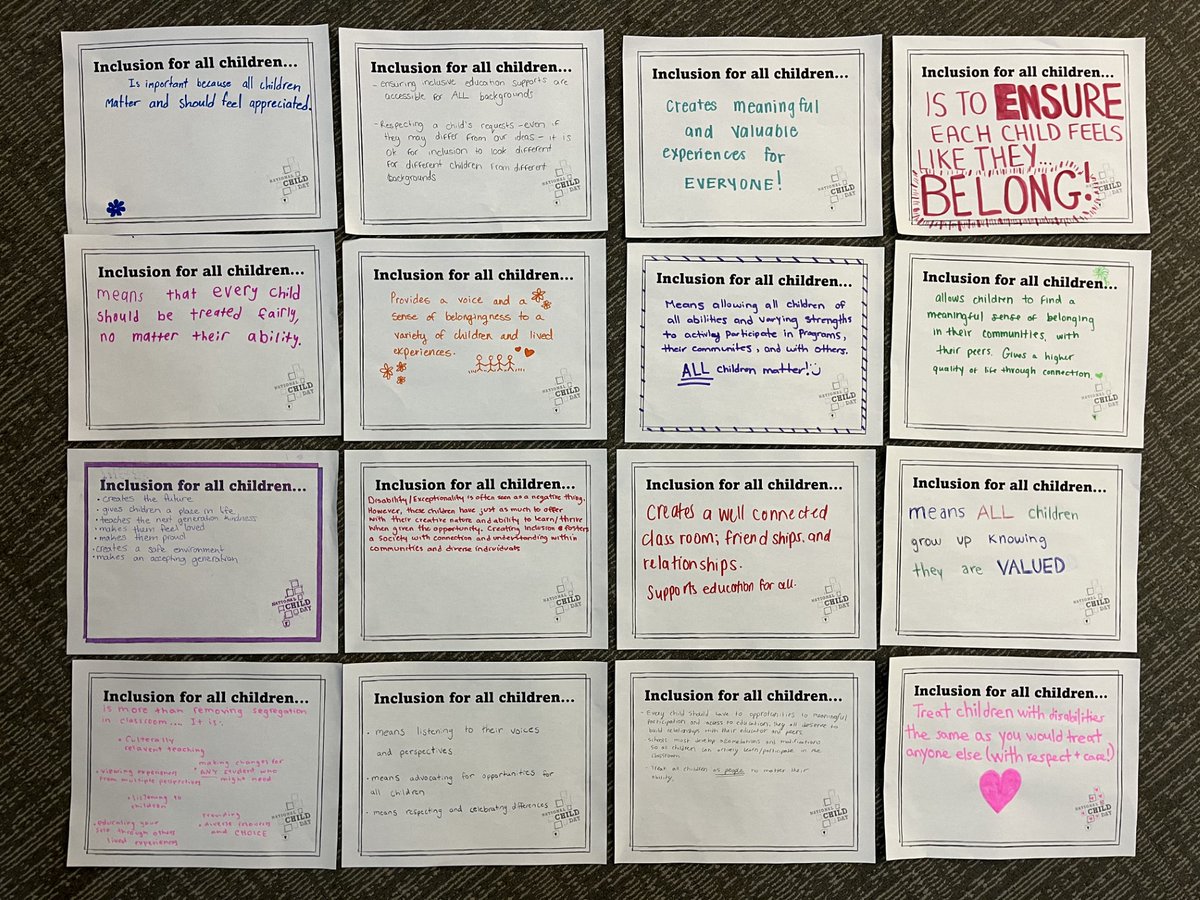 Inclusion for all children...
Is important because all children
Matter and should feel appreciated.
NATIONAL
CHILD
DAY
Inclusion for all children...
- ensuring inclusive education supports are
accessible for ALL backgrounds
- Respecting a child's requests - even if
they may differ from our ideas - it is
ok for inclusion to look different
for different children from different
backgrounds
NATIONAL
CHILD
DAY
Inclusion for all children...
Creates meaningful
and valuable
experiences for
EVERYONE!
NATIONAL
CHILD
DAY
Inclusion for all children...
IS TO ENSURE
EACH CHILD FEELS
LIKE THEY...
BELONG!
CHILD
DAY
Inclusion for all children...
means that every child
should be treated fairly,
no matter their ability.
NATIONAL
CHILD
DAY
Inclusion for all children...
Provides a voice and a
sense of belongingness to a
variety of children and lived
experiences.
NATIONAL
CHILD
DAY
Inclusion for all children...
Means allowing all children of
all abilities and varying strengths
to activley participate in programs,
their communites, and with others.
ALL children matter!
NATIONAL
CHILD
DAY
Inclusion for all children...
allows children to find a
meaningful sense of belonging
in their communities, with
their peers. Gives a higher
quality of life through connection.
NATIONAL
CHILD
DAY
Inclusion for all children...
• creates the future
• gives children a place in life
• teaches the next generation kindness
• makes them feel loved
• makes them proud
• creates a safe environment
• makes an accepting generation
NATIONAL
CHILD
DAY
Inclusion for all children...
Disability/Exceptionality is often seen as a negative thing.
However, these children have just as much to offer
with their creative nature and ability to learn/thrive
when given the opportunity. Creating inclusion fosters
a society with connection and understanding within
communities and diverse individuals
NATIONAL
CHILD
DAY
Inclusion for all children...
Creates a well connected
class room; friendships, and
relationships.
Supports education for all.
NATIONAL
CHILD
DAY
Inclusion for all children...
means ALL children
grow up knowing
they are VALUED
NATIONAL
CHILD
DAY
Inclusion for all children...
is more than removing segregation
in classroom.... It is:
• Culturally
relavent teaching
• viewing experiences
from multiple perspectives
making changes for
• ANY student who
might need
• listening to
children
• educating your
self through others
lived experiences
Providing
• diverse resources
and CHOICE
NATIONAL
CHILD
DAY
Inclusion for all children...
• means listening to their voices
and perspectives
• means advocating for opportunities for
all children
• means respecting and celebrating differences
NATIONAL
CHILD
DAY
Inclusion for all children...
- Every child should have to opportunities to meaningful
participation and access to education, they all deserve to
build relationships with their educator and peers.
- Schools must develop and modifications
so all children can actively learn/participate in the
classroom.
- Treat all children as people no matter their
ability.
NATIONAL
CHILD
DAY
Inclusion for all children...
Treat children with disabilities
the same as you would treat
anyone else (with respect + care!)
NATIONAL
CHILD
DAY